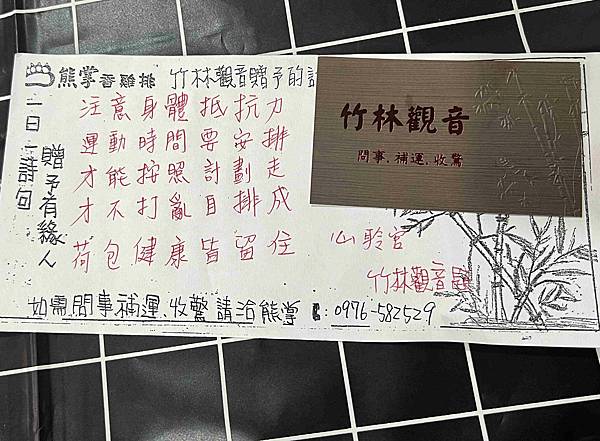 熊掌香雞排 竹林觀音贈予的
一日一詩句
贈予有緣人
注意身體抵抗力
運動時間要安排
才能按照計劃走
才不打亂自排成
荷包健康皆留住
心聆宮
竹林觀音題
竹林觀音
問事.補運.收驚
如需問事補運、收驚請洽熊掌 : 0976-582529